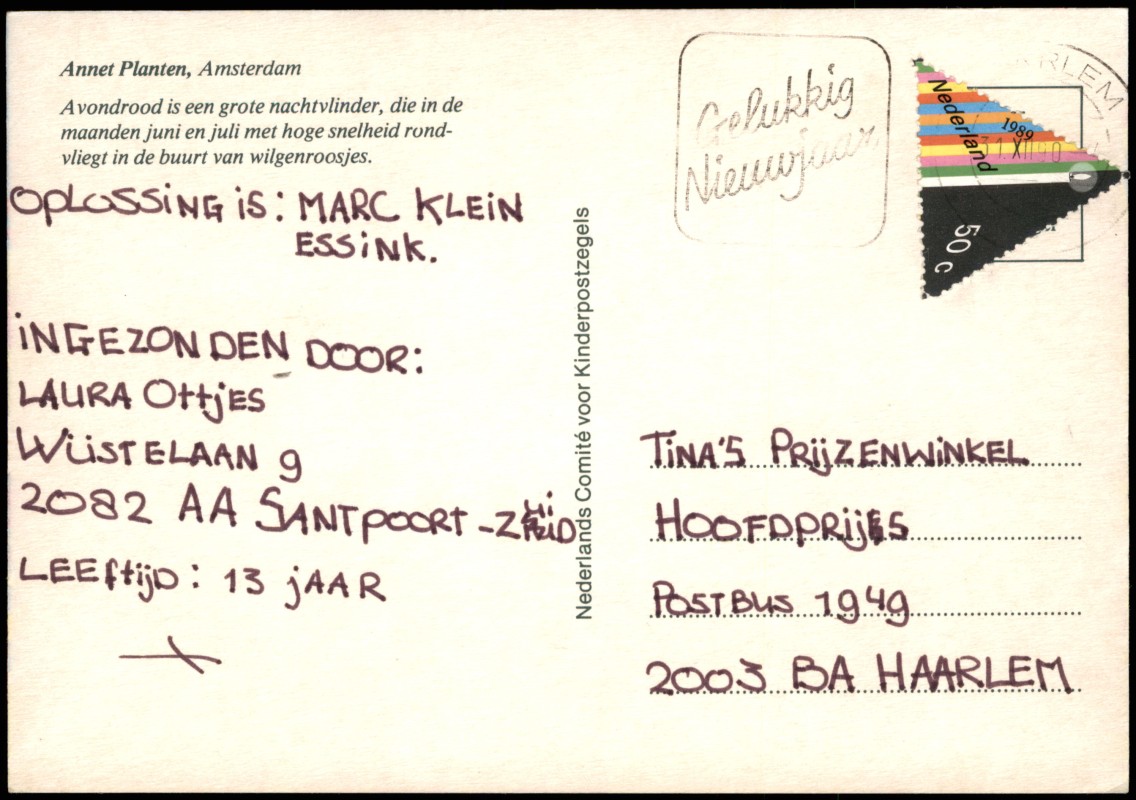 Annet Planten, Amsterdam
Avondrood is een grote nachtvlinder, die in de
maanden juni en juli met hoge snelheid rond-
vliegt in de buurt van wilgenroosjes.
OPLOSSING IS: MARC KLEIN
ESSINK.
INGEZONDEN DOOR:
LAURA OttjES
WÜSTELAAN 9
2082 AA SANTPOORT-ZUID
LEEftijD: 13 jAAR
Nederlands Comité voor Kinderpostzegels
Gelukkig
Nieuwjaar
Nederland
1989
50 c
31.XII.90
TINA'S PRIJZENWINKEL
HOOFDPRIJS
POSTBUS 1949
2003 BA HAARLEM